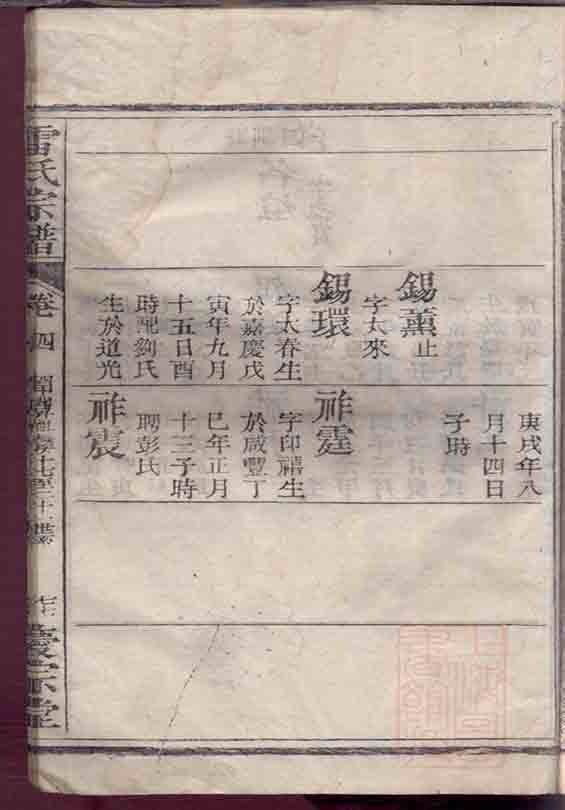 錫薰止
字太來
錫環
字太春生
於嘉慶戊
寅年九月
十五日酉
時配劉氏
生於道光
庚戌年八
月十四日
子時
祚霆
字印禧生
於咸豐丁
巳年正月
十三子時
聘彭氏
祚震
雷氏宗譜
卷四